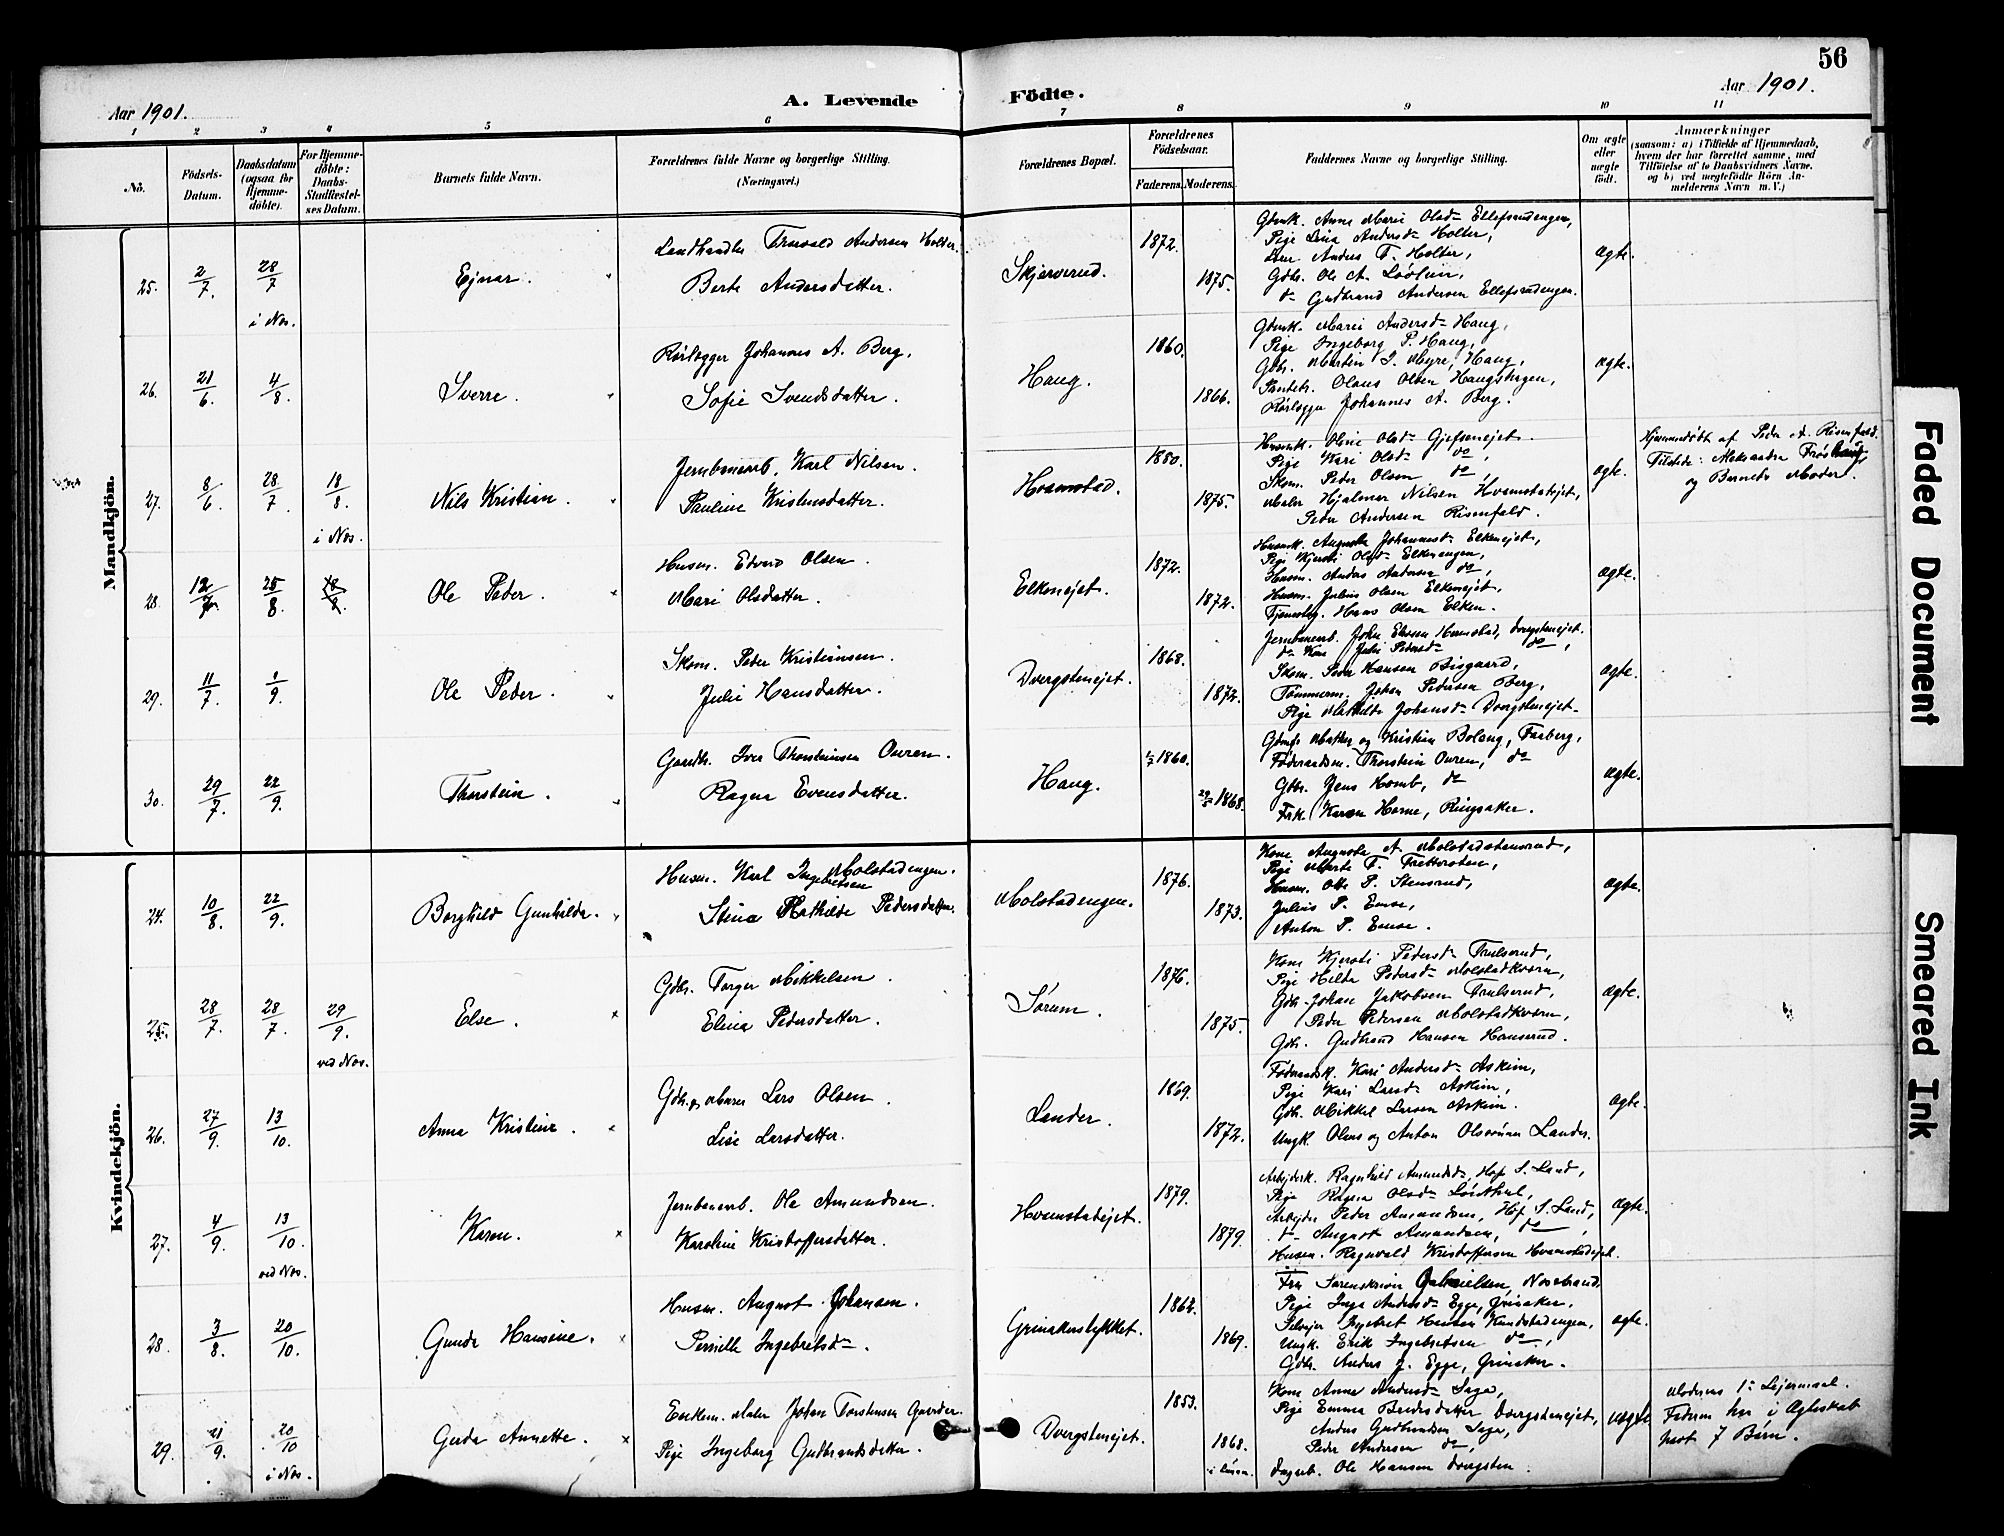 56
Aar 1901.
A. Levende Födte.
Aar 1901.
1 2 3 4 5 6 7 8 9 10 11
No.
Födsels-Datum.
Daabsdatum (ogsaa for Hjemme-döbte).
For Hjemme-döbte: Daabs-Stadfæstel-ses Datum.
Barnets fulde Navn.
Forældrenes fulde Navne og borgerlige Stilling.
(Næringsvei.)
Forældrenes Bopæl.
Forældrenes Födselsaar.
Faderens. Moderens.
Faddernes Navne og borgerlige Stilling.
Om ægte eller uægte födt.
Anmærkninger
(saasom: a) i Tilfælde af Hjemmedaab,
hvem der har forrettet samme, med
Tilföielse af to Daabsvidners Navne,
og b) ved uægtefödte Börn An-
melderens Navn m. V.)
Mandkjön.
25. 2/7. 28/7 i Nos. Ejnar.
Landhandler Thorvald Andersen Holter.
Berte Andersdatter.
Skjerverud. 1872. 1875.
Gbmk. Anne Marie Olsd- Ellefsrudengen,
Pige Lina Andersd- Holter,
Anders T. Holter,
Gdbr. Ole A. Lövlien,
do Gudbrand Andersen Ellefsrudengen.
ægte.
26. 21/6. 4/8. Sverre.
Rørlægger Johannes A. Berg.
Sofie Svendsdatter.
Haug. 1860. 1866.
Gbmk. Marie Andersd- Haug,
Pige Ingeborg P. Haug,
Gbr. Martin J. Myre, Haug,
Olaus Olsen Haugshagen,
Rørlægger Johannes A. Berg.
ægte.
27. 8/6. 28/7. 18/8. i Nos. Nils Kristian.
Jernbanearb. Karl Nilsen.
Pauline Kristensdatter.
Hvamstad. 1880. 1875.
Husmk. Oline Olsd- Gjefseneiet.
Pige Kari Olsd- do,
Skom. Peder Olsen do,
Maler Hjalmar Nilsen Hvamstadejet,
Peder Andersen Risenfald.
ægte.
Hjemmedöbt af Peder A. Risenfald.
Tilstede: Aleksander Fröshaug,
og Barnets Moder.
28. 12/7. 25/8. Ole Peder.
Husm. Edvard Olsen.
Mari Olsdatter.
Elkenejet. 1872. 1872.
Husmk. Augusta Johannesd- Elkenejet,
Pige Kjersti Olsd- Elkenengen,
Husm. Anders Andersen do,
Husm. Julius Olsen Elkenejet,
Hans Olsen Elken.
ægte.
29. 11/7. 1/9. Ole Peder.
Skom. Peder Kristiansen.
Julie Hansdatter.
Dvergstenejet. 1868. 1872.
Jernbanearb. John Hvamstad, Dvergstenejet.
do Kone Julie Pedersd- do,
Skom. Peder Hansen Bisgaard,
Tømmerm. Johan Pedersen Berg,
Pige Mathilde Johansd- Dvergstenejet.
ægte.
30. 29/7. 22/9. Thorstein.
Gaardbr. Iver Thorsteinsen Ouren.
Ragna Evensdatter.
Haug. 1860. 1868.
Mathea og Kristian Bolaug, Faaberg,
Föderaadsm. Thorstein Ouren, do
Gbr. Jens Homb, do
Frk. Karen Horne, Ringsaker.
ægte.
Kvindekjön.
24. 10/8. 22/9. Borghild Gunhilda.
Husm. Karl Ingebretsen Molstadengen.
Stina Mathilde Pedersdatter.
Molstadengen. 1876. 1873.
Kone Augusta A. Molstadstensrud,
Pige Marte T. Trettersteen,
Husm. Otto P. Stensrud,
Julius P. Emse,
Anton P. Emse.
ægte.
25. 28/7. 28/7. 29/9. ved Nos. Else.
Gdbr. Torger Mikkelsen.
Elina Pedersdatter.
Sörum. 1876. 1875.
Kone Kjersti Pedersd- Trulserud,
Pige Hilda Pedersd- Molstadkværn,
Gdbr. Johan Jakobsen Trulserud,
Peder Pedersen Molstadkværn,
Gdbr. Gudbrand Hansen Hanserud.
ægte.
26. 27/9. 13/10. Anna Kristine.
Gdbr. og Murer Lars Olsen.
Lise Larsdatter.
Lander. 1869. 1872.
Föderaadsk. Kari Andersd- Askim,
Pige Kari Larsd- Askim,
Gdbr. Mikkel Larsen Askim.
Ungk. Olaus og Anton Olssönner Lander.
ægte.
27. 4/9. 13/10. ved Nos. Karen.
Jernbanearb. Ole Amundsen.
Karoline Kristoffersdatter.
Hvamstadejet. 1879. 1879.
Arbejdersk. Ragnhild Amundsd-, Hof S. Land,
Pige Ragna Olsd-
Arbejder Peder Amundsen, Hof S. Land,
do August Amundsen, do,
Husm. Ragnvald Kristoffersen Hvamstadejet.
ægte.
28. 3/8. 20/10. Gunda Hansine.
Husm. August Johansen.
Pernille Ingebretsd-.
Grinakerstykket. 1862. 1869.
Fru Sorenskriver Gabrielsen, Nosstrand.
Pige Inga Andersd- Egge, Grinaker.
Ingebret Hansen
Ungk. Erik Ingebretsen do,
Gdbr. Anders J. Egge, Grinaker.
ægte.
29. 21/9. 20/10 i Nos. Gerda Annette.
Enkem. Maler Johan Torstensen Gaarder.
Pige Ingeborg Gudbrandsdatter.
Dvergstenejet. 1853. 1868.
Kone Anna Andersd- Saga,
Pige Emma Bredesdatter Dvergstenejet,
Anders Gudbrandsen Saga,
Peder Andersen do,
Dagarb. Ole Hansen Dvergsten.
uægte
Moderens 1ste Lejermaal.
Faderen har i Ægteskab
havt 7 Börn.
Faded Document
Smeared Ink